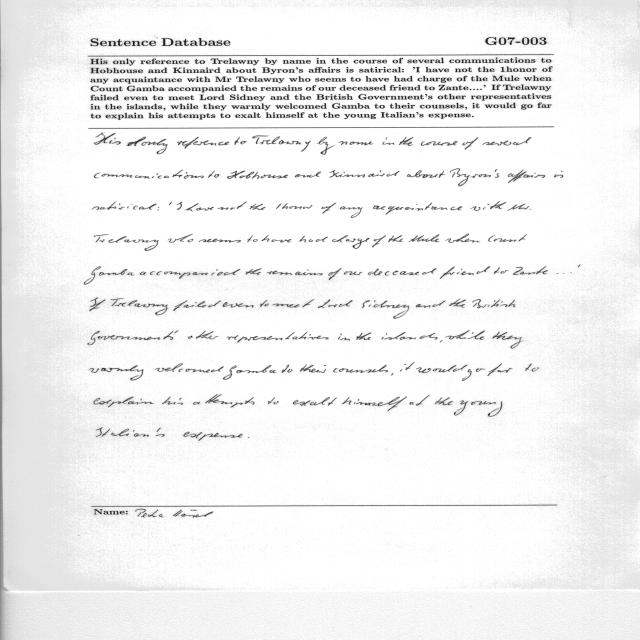 Sentence Database G07-003
His only reference to Trelawny by name in the course of several communications to
Hobhouse and Kinnaird about Byron's affairs is satirical: 'I have not the 1honor of
any acquaintance with Mr Trelawny who seems to have had charge of the Mule when
Count Gamba accompanied the remains of our deceased friend to Zante....' If Trelawny
failed even to meet Lord Sidney and the British Government's other representatives
in the islands, while they warmly welcomed Gamba to their counsels, it would go far
to explain his attempts to exalt himself at the young Italian's expense.
His donly reference to Trelawny by name in the course of several
communications to Hobhouse and Kinnaird about Byron's affairs is
satirical: 'I have not the 1honor of any acquaintance with Mr.
Trelawny who seems to have had charge of the Mule when Count
Gamba accompanied the remains of our deceased friend to Zante ...'
If Trelawny failed even to meet Lord Sidney and the British
Governments' other representatives in the islands, while they
warmly welcomed Gamba to their counsels, it would go far to
explain his attempts to exalt himself at the young
Italian's expense.
Name: